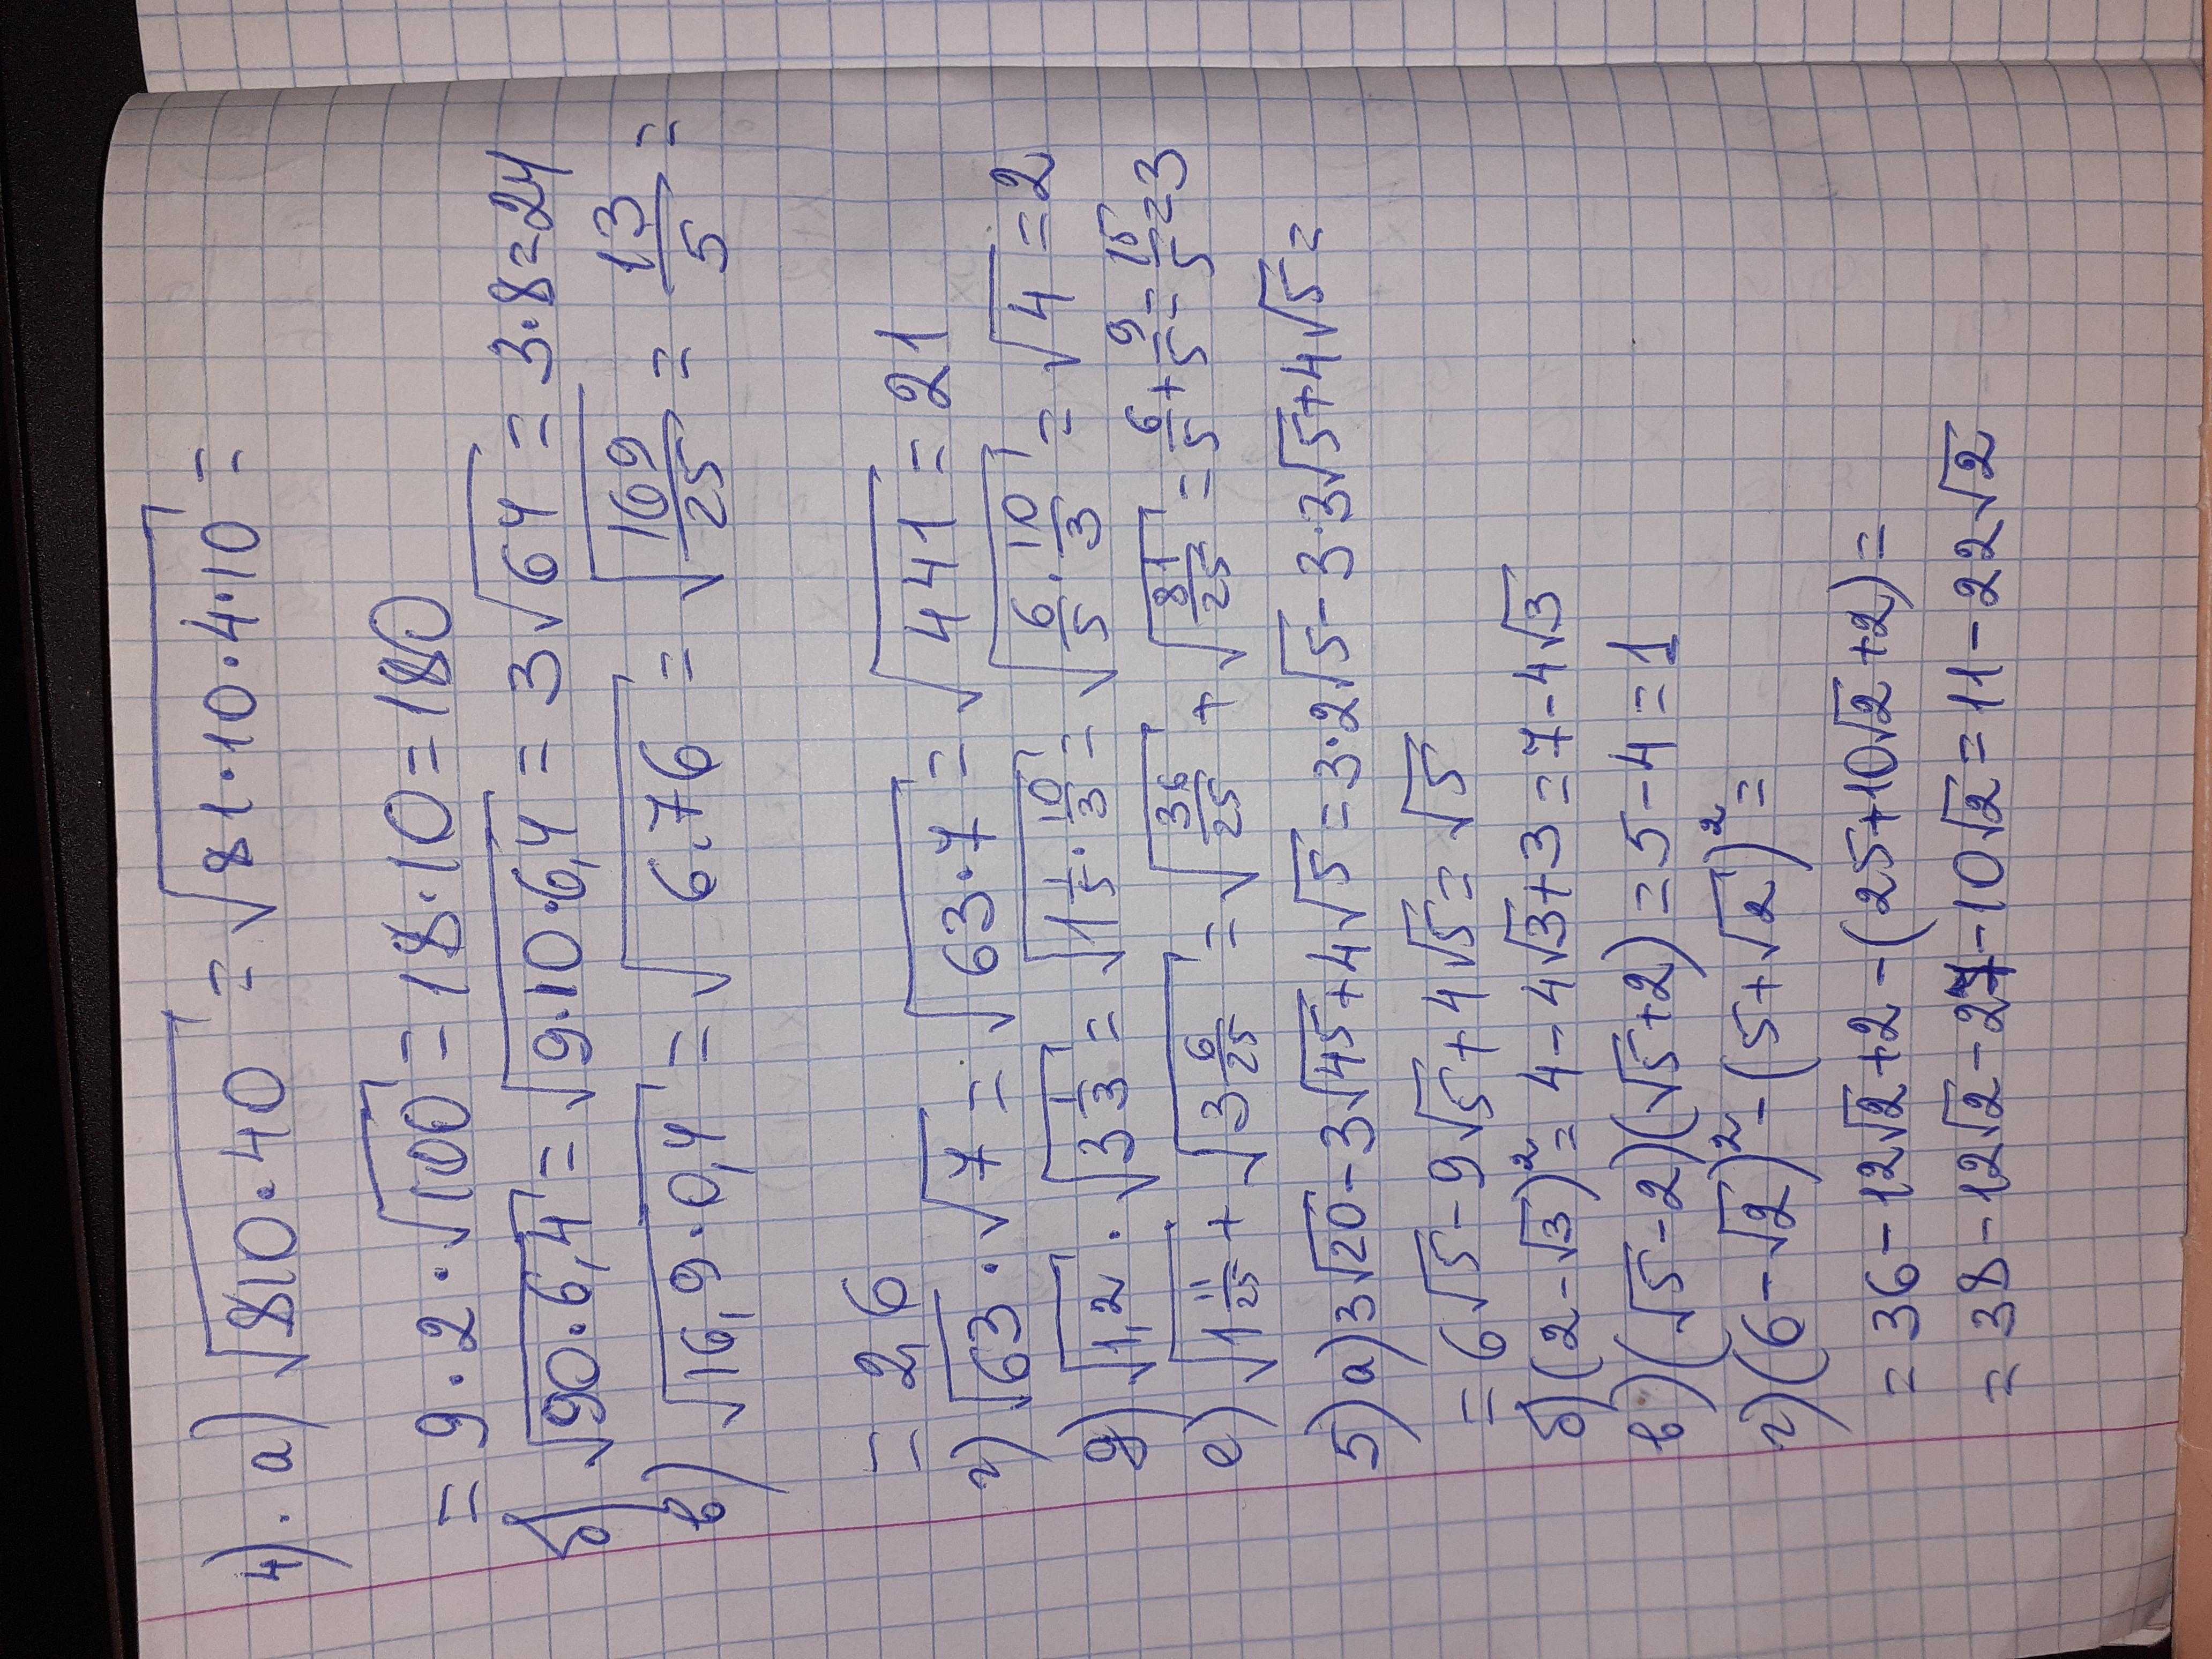 4). а) √810·40 = √81·10·4·10 =
= 9·2·√100 = 18·10 = 180
б) √90·6,4 = √9·10·6,4 = 3√64 = 3·8=24
в) √16,9·0,4 = √6.76 = √169/25 = 13/5 =
= 2,6
г) √63·√7 = √63·7 = √441 = 21
д) √1,2·√3 1/3 = √1 1/5·10/3 = √6/5·10/3 = √4 = 2
е) √1 11/25 + √3 6/25 = √36/25 + √81/25 = 6/5+9/5=15/5=3
5) а) 3√20-3√45+4√5=3·2√5-3·3√5+4√5=
= 6√5-9√5+4√5=√5
б) (2-√3)²=4-4√3+3=7-4√3
в) (√5-2)(√5+2)=5-4=1
г) (6-√2)²-(5+√2)²=
= 36-12√2+2-(25+10√2+2)=
= 38-12√2-27-10√2=11-22√2